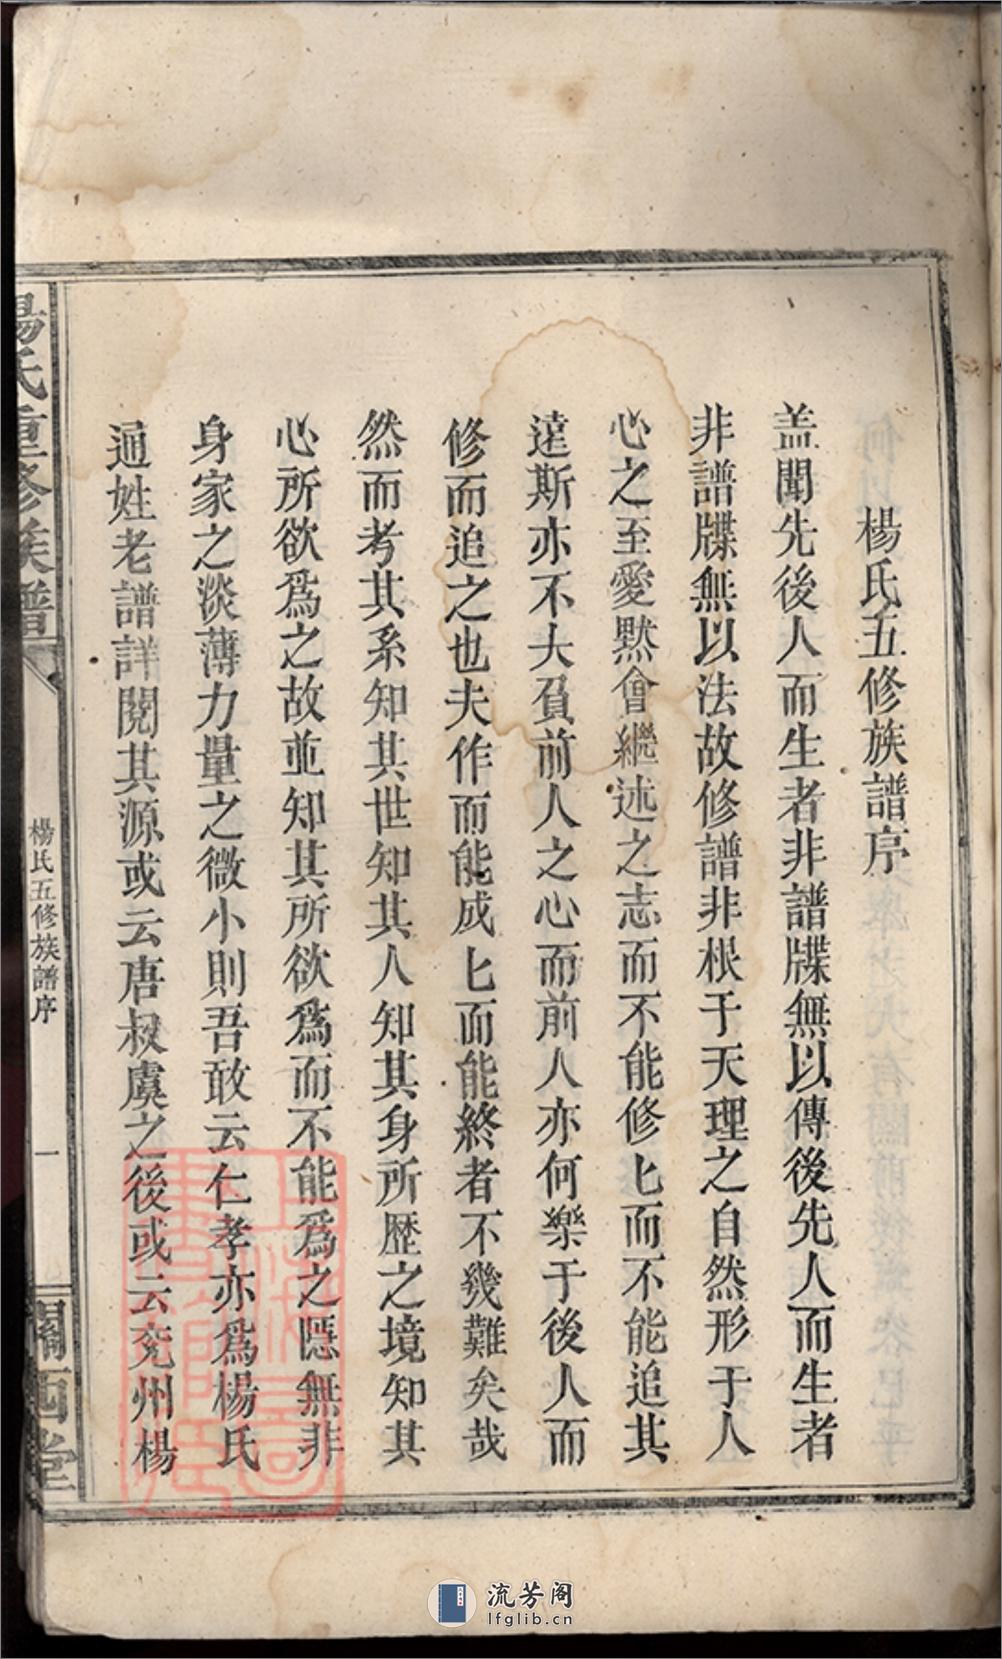 楊氏五修族譜序
盖聞先後人而生者非譜牒無以傳後先人而生者
非譜牒無以法故修譜非根于天理之自然形于人
心之至愛黙會繼述之志而不能修匕而不能追其
遠斯亦不大負前人之心而前人亦何樂于後人而
修而追之也夫作而能成匕而能終者不幾難矣哉
然而考其系知其世知其人知其身所歷之境知其
心所欲爲之故並知其所欲爲而不能爲之隱無非
身家之淡薄力量之微小則吾敢云仁孝亦爲楊氏
通姓老譜詳閱其源或云唐叔虞之後或云兖州楊
楊氏重修族譜
楊氏五修族譜序
一
關西堂
流芳阁
lfglib.cn